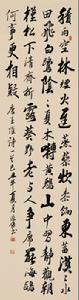 積雨空林煙火遲蒸藜炊黍餉東菑漠漠水
田飛白鷺陰陰夏木囀黃鸝山中習靜觀朝
槿松下清齋折露葵野老與人爭席罷海鷗
何事更相疑 唐王維詩一首 年夏月 書